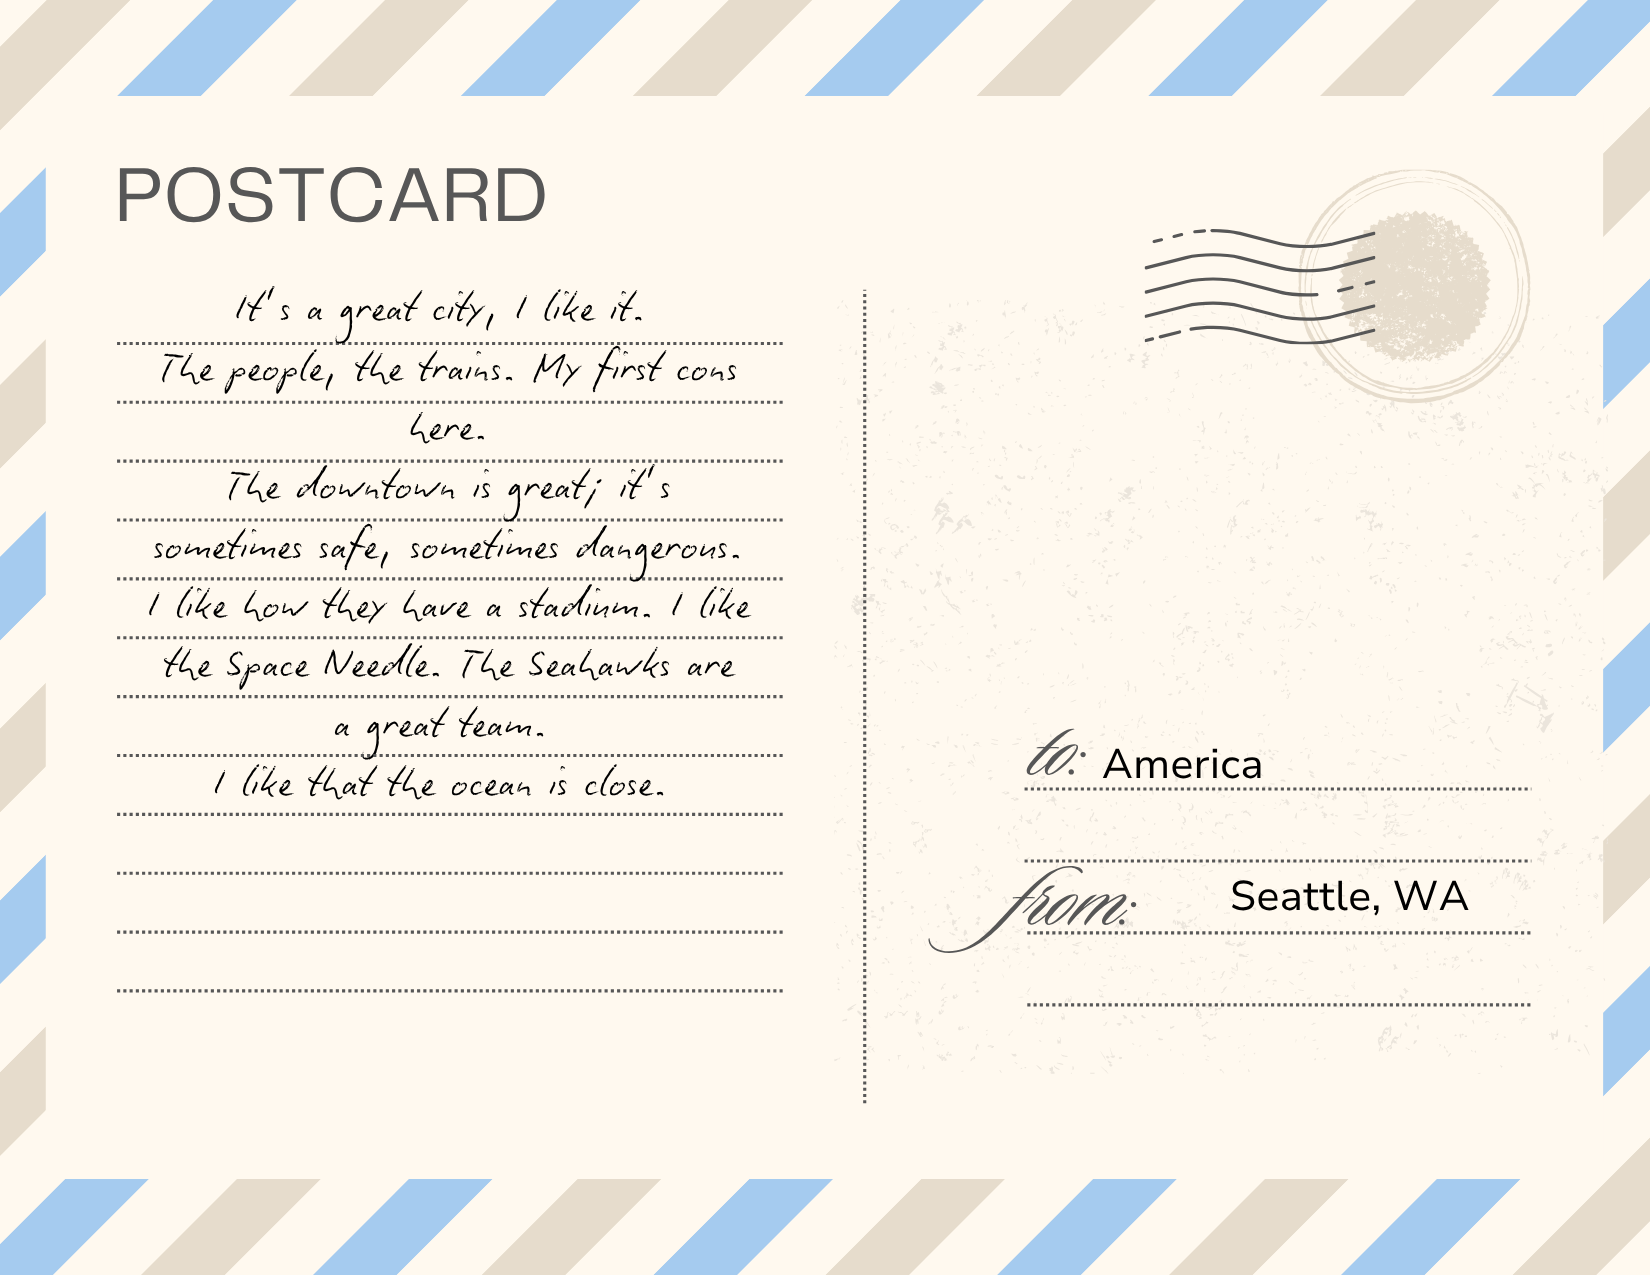 POSTCARD
It's a great city, I like it.
The people, the trains. My first cons
here.
The downtown is great; it's
sometimes safe, sometimes dangerous.
I like how they have a stadium. I like
the Space Needle. The Seahawks are
a great team.
I like that the ocean is close.
to: America
from: Seattle, WA